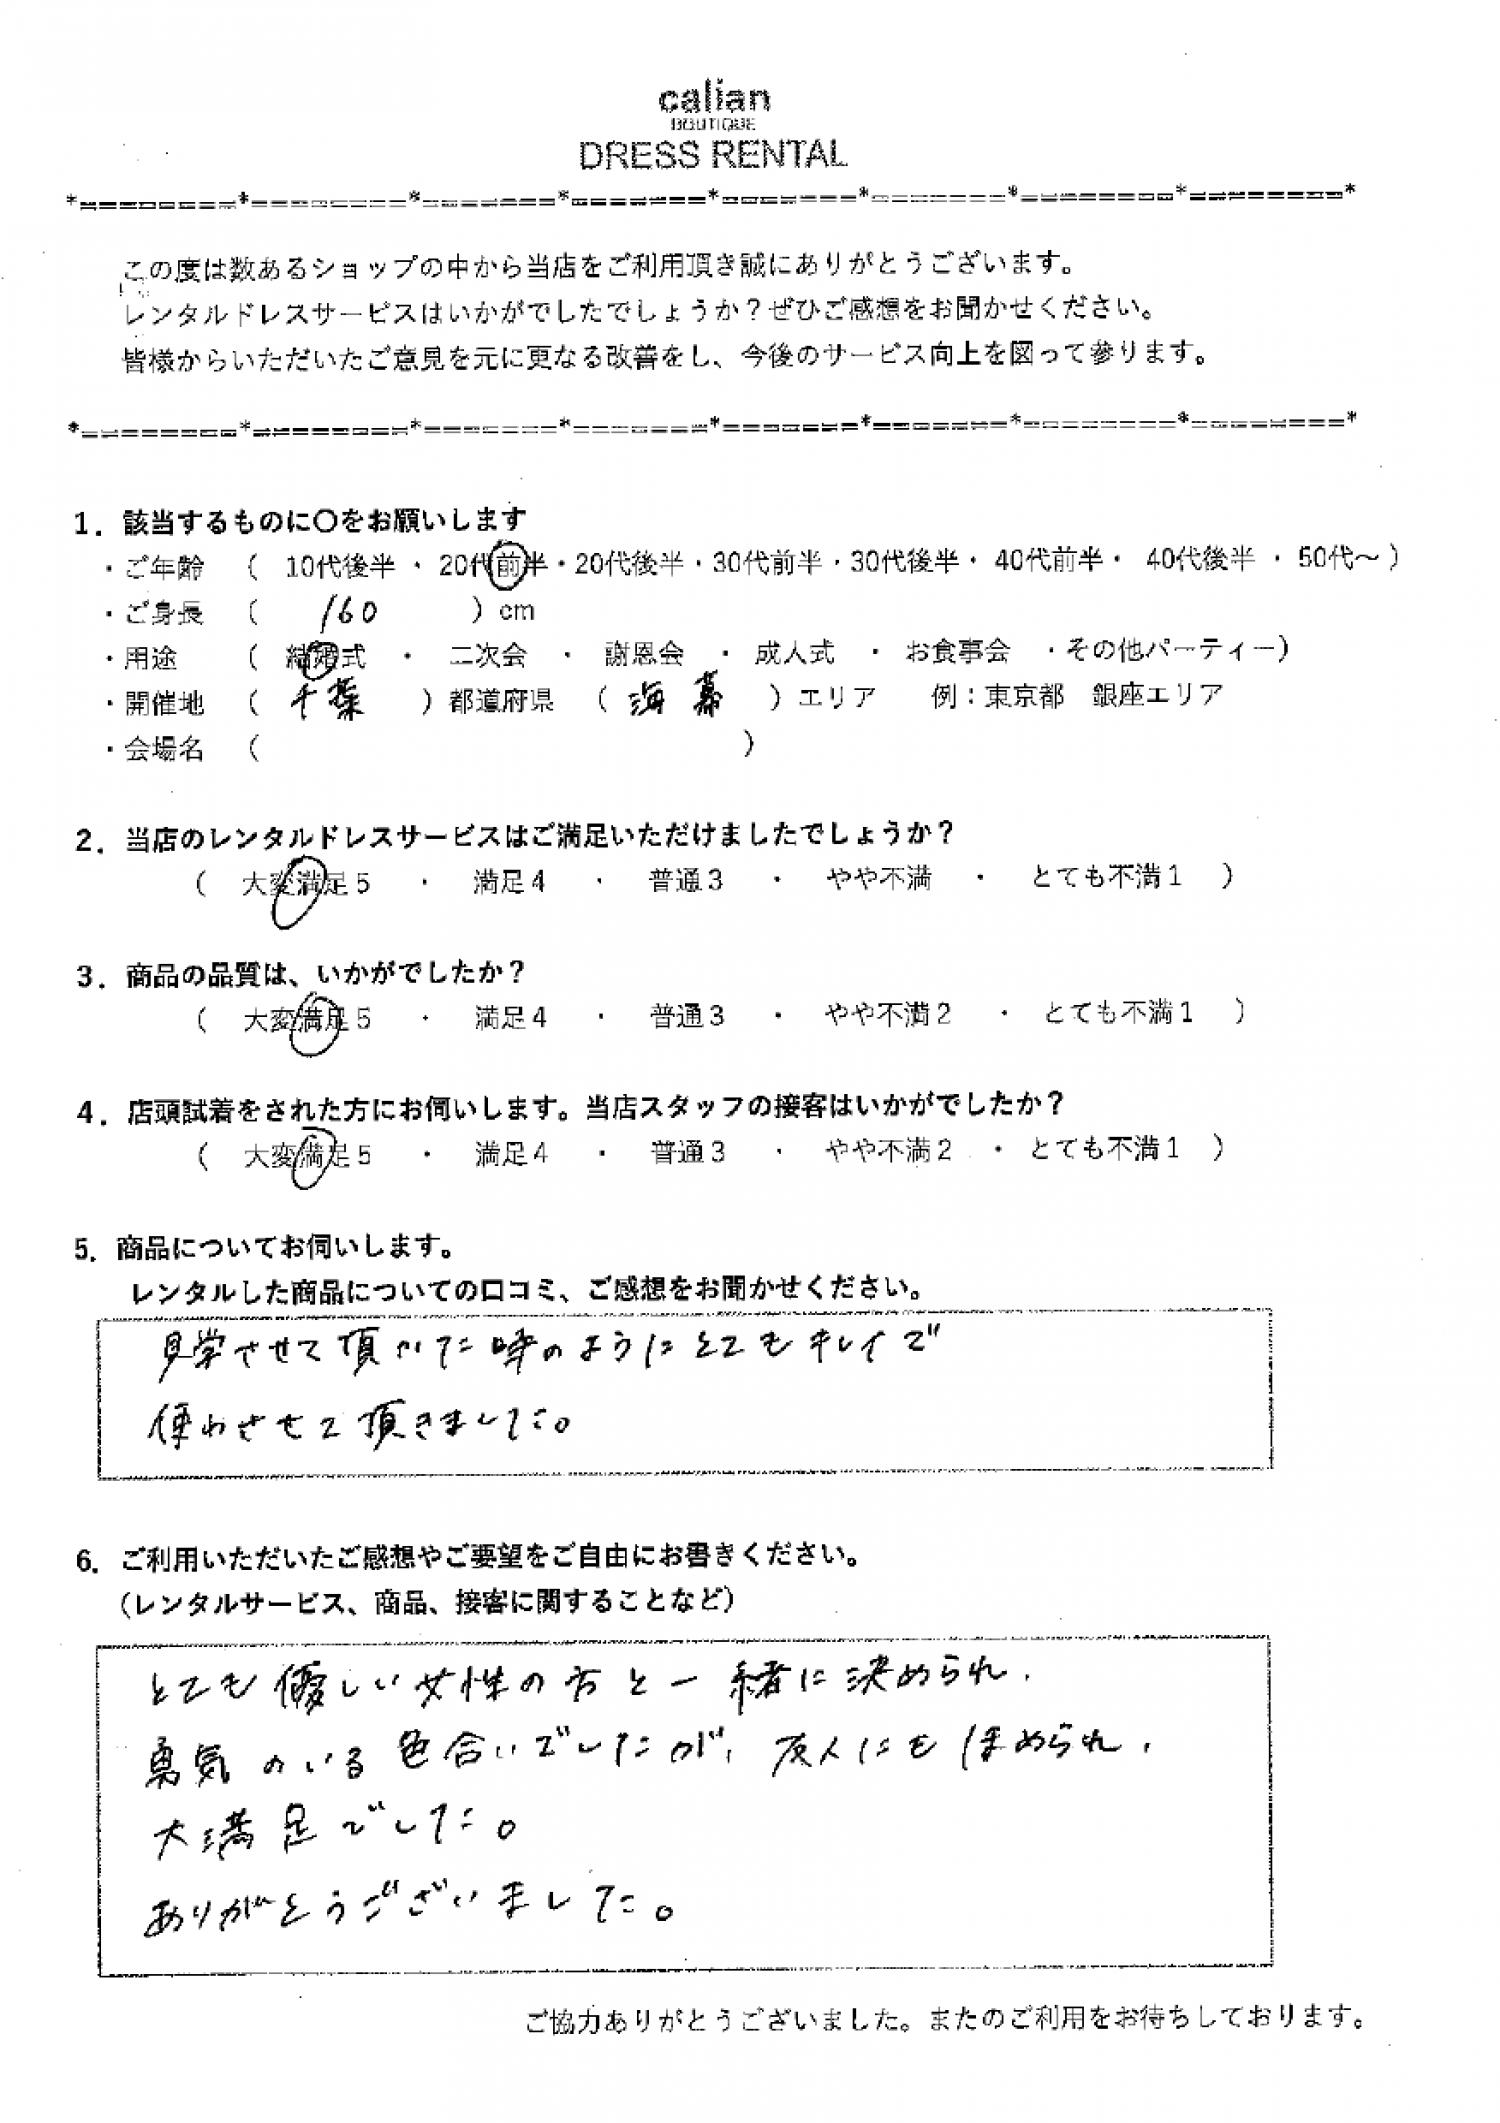 calian
BOUTIQUE
DRESS RENTAL
*=========*=========*=======*=======*=======*=======*========*========*
この度は数あるショップの中から当店をご利用頂き誠にありがとうございます。
レンタルドレスサービスはいかがでしたでしょうか？ぜひご感想をお聞かせください。
皆様からいただいたご意見を元に更なる改善をし、今後のサービス向上を図って参ります。
*=========*=========*=======*=======*=======*=======*========*========*
1．該当するものに〇をお願いします
・ご年齢 （ 10代後半 ・ 20代前半・20代後半・30代前半・30代後半・ 40代前半・ 40代後半 ・ 50代～ ）
・ご身長 （ 160 ）cm
・用途 （ 結婚式 ・ 二次会 ・ 謝恩会 ・ 成人式 ・ お食事会 ・その他パーティー）
・開催地 （ 千葉 ）都道府県 （ 海幕 ）エリア 例：東京都 銀座エリア
・会場名 （ ）
2．当店のレンタルドレスサービスはご満足いただけましたでしょうか？
（ 大変満足5 ・ 満足4 ・ 普通3 ・ やや不満 ・ とても不満1 ）
3．商品の品質は、いかがでしたか？
（ 大変満足5 ・ 満足4 ・ 普通3 ・ やや不満2 ・ とても不満1 ）
4．店頭試着をされた方にお伺いします。当店スタッフの接客はいかがでしたか？
（ 大変満足5 ・ 満足4 ・ 普通3 ・ やや不満2 ・ とても不満1 ）
5．商品についてお伺いします。
レンタルした商品についての口コミ、ご感想をお聞かせください。
見学させて頂いた時のようにとてもキレイで
使わさせて頂きました。
6．ご利用いただいたご感想やご要望をご自由にお書きください。
（レンタルサービス、商品、接客に関することなど）
とても優しい女性の方と一緒に決められ、
勇気のいる色合いでしたが、友人にもほめられ、
大満足でした。
ありがとうございました。
ご協力ありがとうございました。またのご利用をお待ちしております。